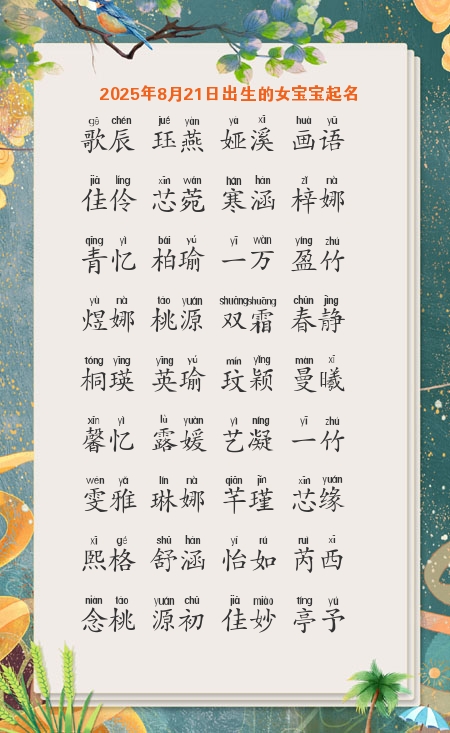 2025年8月21日出生的女宝宝起名
gē chén jué yàn yà xī huà yǔ
歌辰 珏燕 娅溪 画语
jiā líng xīn wǎn hán hán zǐ nà
佳伶 芯菀 寒涵 梓娜
qīng yì bái yú yī wàn yíng zhú
青忆 柏瑜 一万 盈竹
yù nà táo yuán shuāng shuāng chūn jìng
煜娜 桃源 双霜 春静
tóng yīng yīng yú mín yǐng màn xī
桐瑛 英瑜 玟颖 曼曦
xīn yì lù yuàn yì níng yī zhú
馨忆 露媛 艺凝 一竹
wén yǎ lín nà qiān jǐn xīn yuán
雯雅 琳娜 芊瑾 芯缘
xī gé shū hán yí rú ruì xī
熙格 舒涵 怡如 芮西
niàn táo yuán chū jiā miào tíng yú
念桃 源初 佳妙 亭予